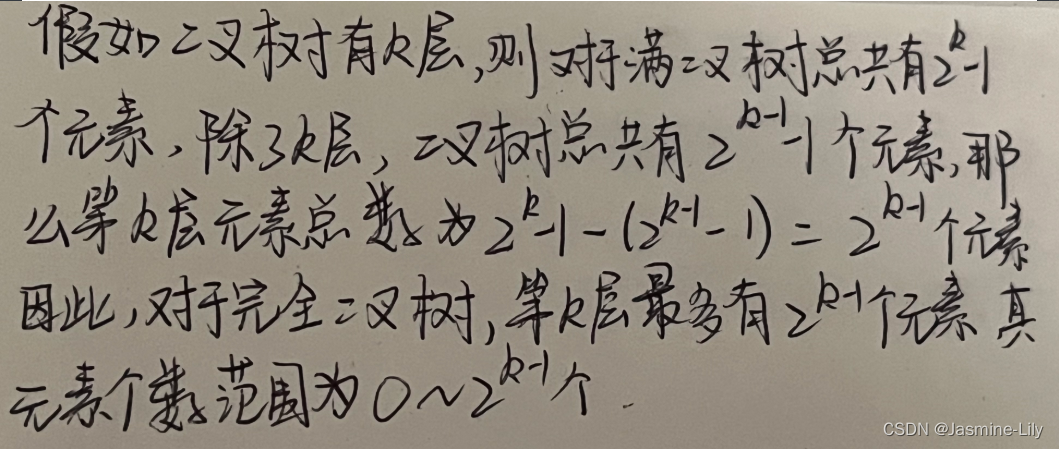 假如二叉树有k层,则对于满二叉树总共有2^k-1
个元素,除了k层,二叉树总共有2^(k-1)-1个元素,那
么第k层元素总数为2^k-1-(2^(k-1)-1)=2^(k-1)个元素
因此,对于完全二叉树,第k层最多有2^(k-1)个元素 其
元素个数范围为0~2^(k-1)个.
CSDN @Jasmine-Lily